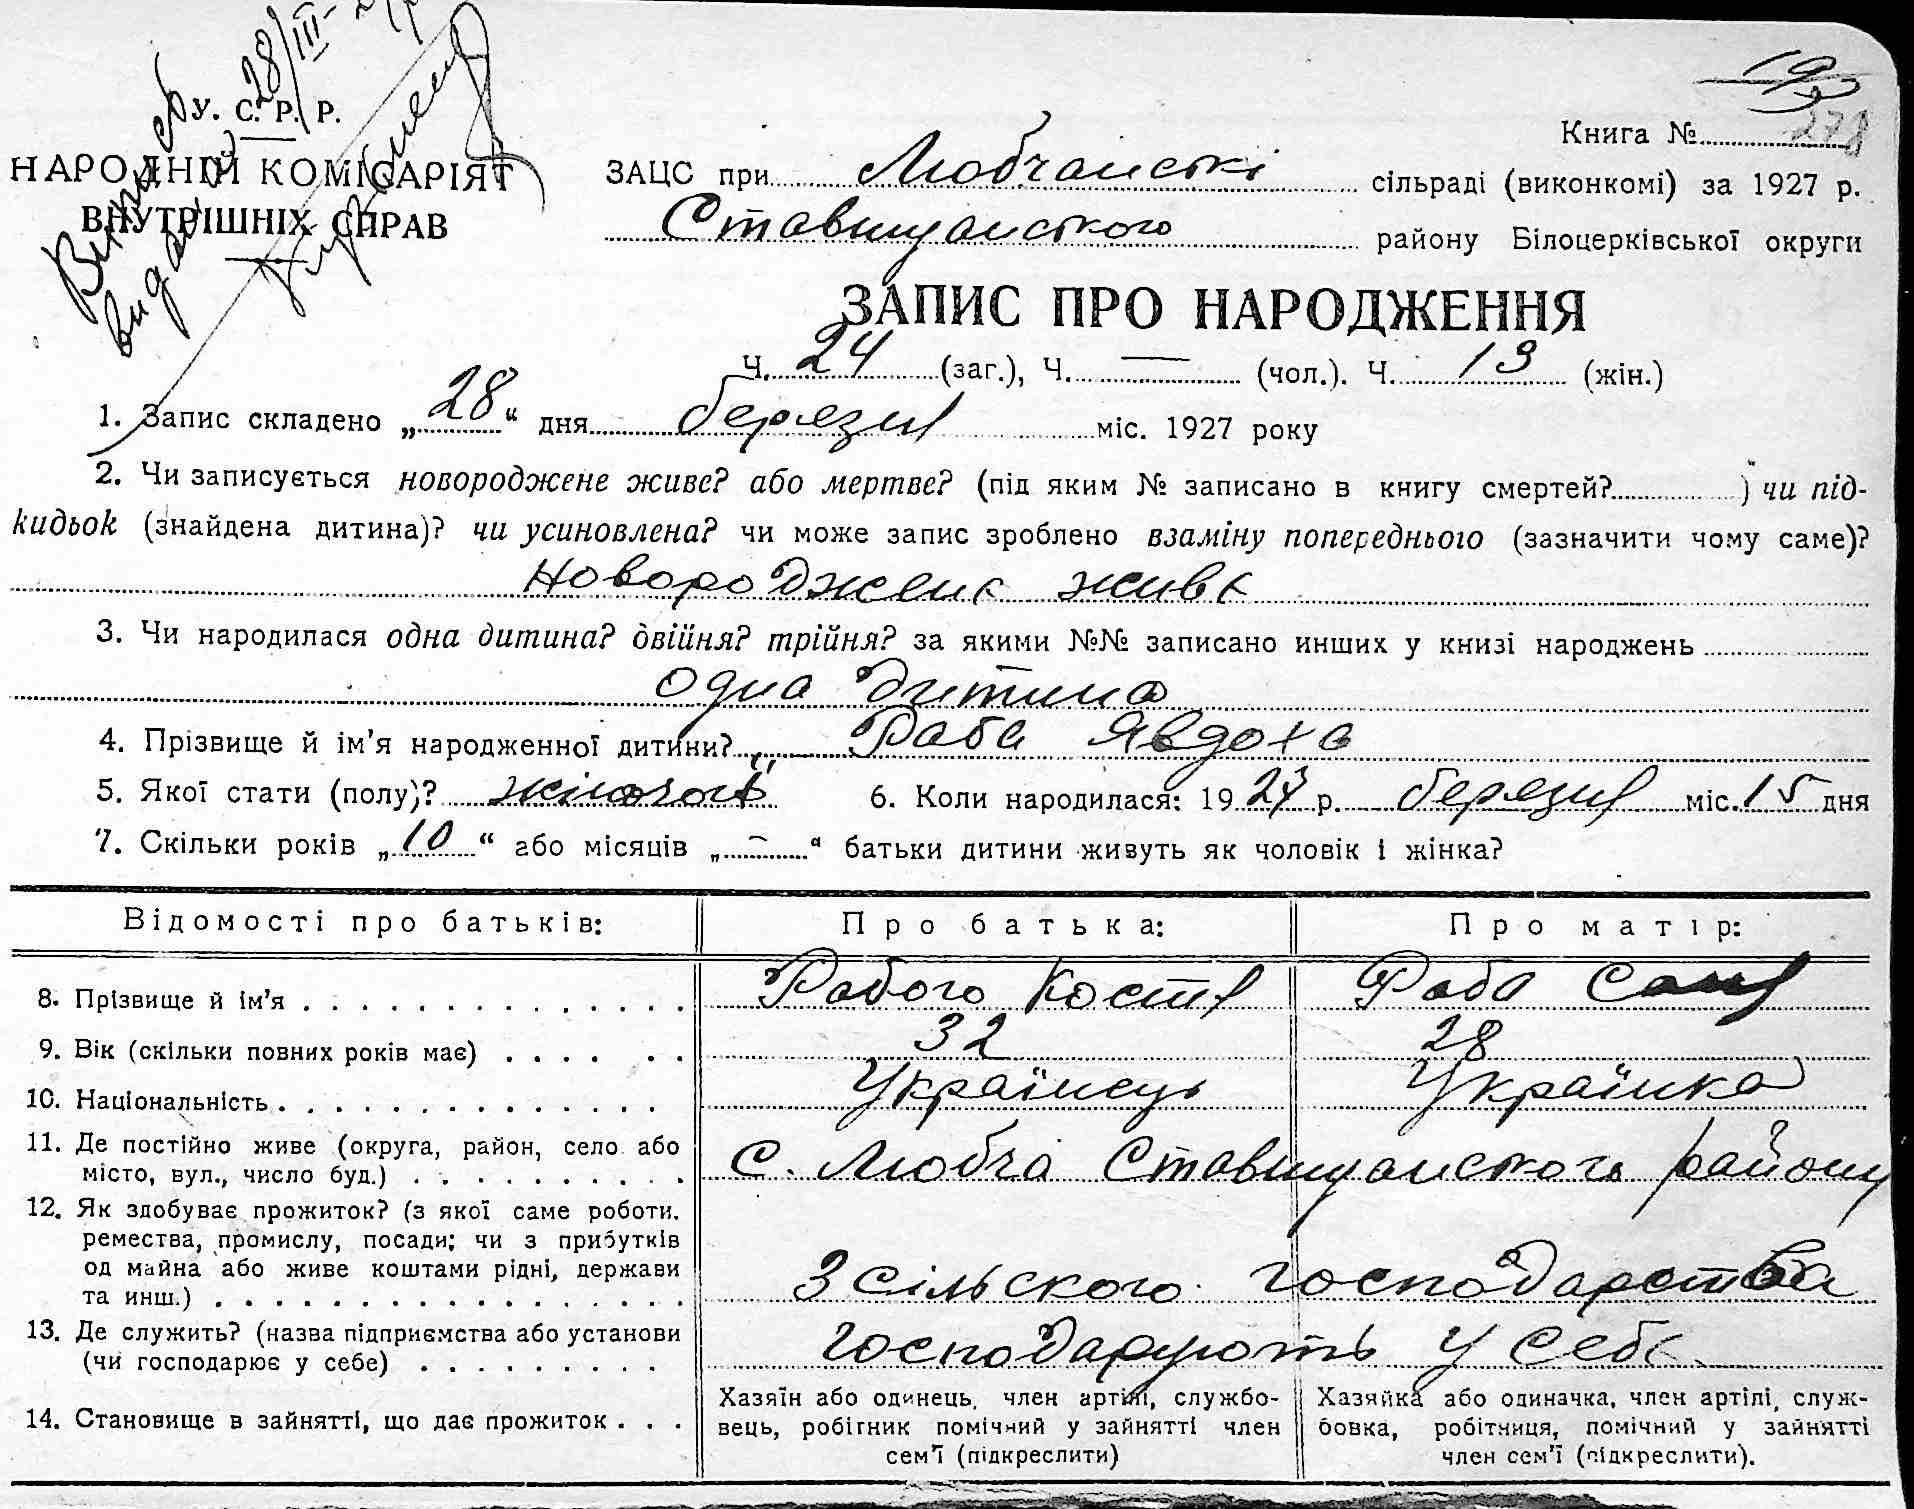 Витяг
видано
28/III-27р
У. С. Р. Р.
НАРОДНІЙ КОМІСАРІЯТ
ВНУТРІШНІХ СПРАВ
Книга №
278
ЗАЦС при Любчанські сільраді (виконкомі) за 1927 р.
Ставищанського району Білоцерківської округи
ЗАПИС ПРО НАРОДЖЕННЯ
Ч. 24 (заг.), Ч. — (чол.). Ч. 13 (жін.)
1. Запис складено „28“ дня березня міс. 1927 року
2. Чи записується новороджене живе? або мертве? (під яким № записано в книгу смертей? ) чи під-
кидьок (знайдена дитина)? чи усиновлена? чи може запис зроблено взаміну попереднього (зазначити чому саме)?
новороджене живе
3. Чи народилася одна дитина? двійня? трійня? за якими №№ записано инших у книзі народжень
одна дитина
4. Прізвище й ім’я народженної дитини? Раба Явдоха
5. Якої стати (полу)? жіночої 6. Коли народилася: 1927 р. березня міс. 15 дня
7. Скільки років „10“ або місяців „–“ батьки дитини живуть як чоловік і жінка?
Відомості про батьків: Про батька: Про матір:
8. Прізвище й ім’я Рабого Костя Раба Соня
9. Вік (скільки повних років має) 32 28
10. Національність Українець Українка
11. Де постійно живе (округа, район, село або
місто, вул., число буд.) С. Любча Ставищанського району
12. Як здобуває прожиток? (з якої саме роботи,
ремества, промислу, посади; чи з прибутків
од майна або живе коштами рідні, держави
та инш.) З сільського господарства
13. Де служить? (назва підприємства або установи
(чи господарює у себе) господарують у себе
14. Становище в зайнятті, що дає прожиток
Хазяїн або одинець, член артілі, службо-
вець, робітник помічний у зайнятті член
сем’ї (підкреслити)
Хазяйка або одиначка, член артілі, служ-
бовка, робітниця, помічний у зайнятті
член сем’ї (підкреслити).